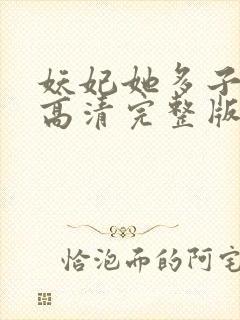 妖妃她多子
高清完整版
恰泡而的阿宅